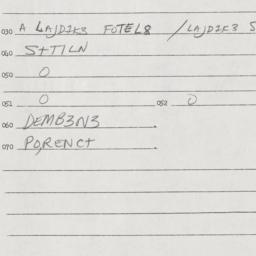 030 A LAJD1K3 FOTEL8 /LAJD1K3 S
040 S+TILN
050 0
051 0 052 0
060 DEMB3N3
070 PORENCT